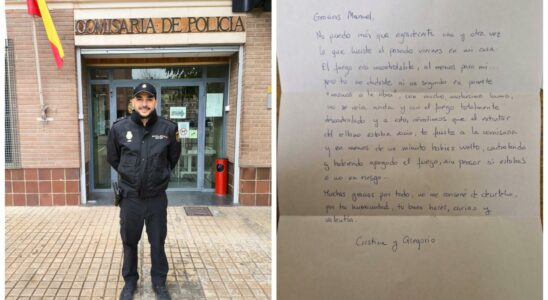 COMISARIA·DE·POLICIA
Gracias Manuel,
No puedo más que agradecerte una y otra vez
lo que hiciste el pasado viernes en mi casa.
El fuego era incontrolable, al menos para mi...
pero tú no dudaste ni un segundo en ponerte
"manos a la obra", con mucho, muchísimo humo,
no se veía nada y con el fuego totalmente
descontrolado y a esto, añadimos que el extintor
del último estaba vacío, te fuiste a la comisaría
y en menos de un minuto habías vuelto,
y habiendo apagado el fuego, sin pensar si estabas
o no en riesgo...
Muchas gracias por todo, no me cansaré de decírtelo,
por tu humanidad, tu buen hacer, cariño y
valentía.
Cristina y Gregorio